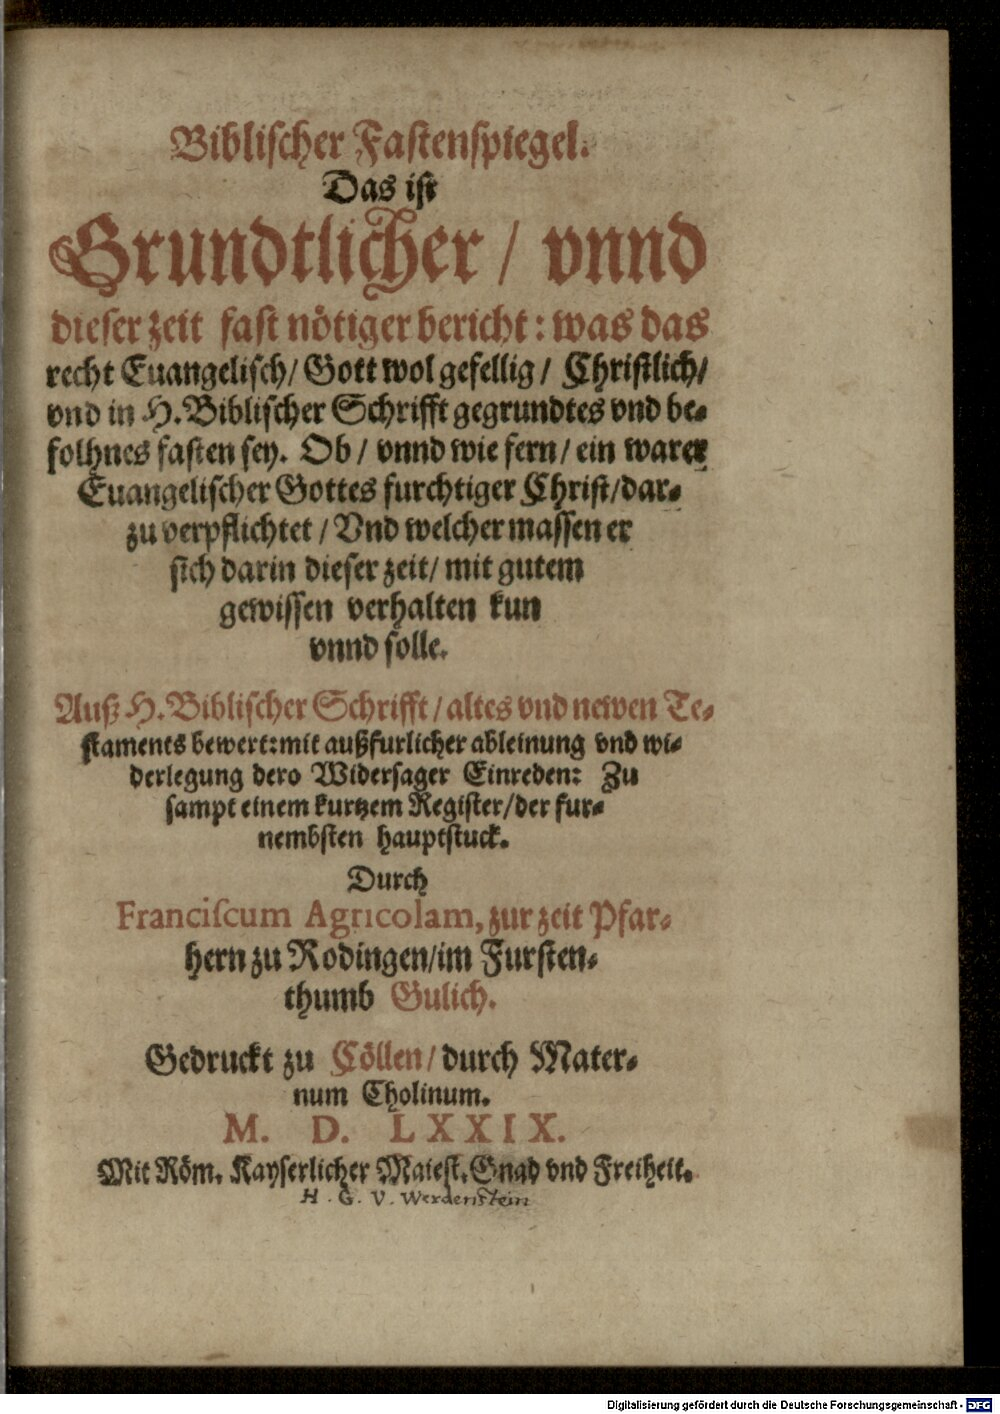 Biblischer Fastenspiegel.
Das ist
Grundtlicher / vnnd
dieser zeit fast nötiger bericht: was das
recht Euangelisch / Gott wol gefellig / Christlich /
vnd in H. Biblischer Schrifft gegrundtes vnd be-
folhnes fasten sey. Ob / vnnd wie fern / ein warer
Euangelischer Gottes furchtiger Christ / dar-
zu verpflichtet / Vnd welcher massen er
sich darin dieser zeit / mit gutem
gewissen verhalten kun
vnnd solle.
Auß H. Biblischer Schrifft / altes vnd newen Te-
staments bewert: mit außfurlicher ableinung vnd wi-
derlegung dero Widersager Einreden: Zu
sampt einem kurtzem Register / der fur-
nembsten hauptstuck.
Durch
Franciscum Agricolam, zur zeit Pfar-
hern zu Rodingen / im Fursten-
thumb Gulich.
Gedruckt zu Cöllen / durch Mater-
num Cholinum.
M. D. LXXIX.
Mit Röm. Kayserlicher Maiest. Gnad vnd Freiheit.
H. G. V. Werdenstein
Digitalisierung gefördert durch die Deutsche Forschungsgemeinschaft - DFG